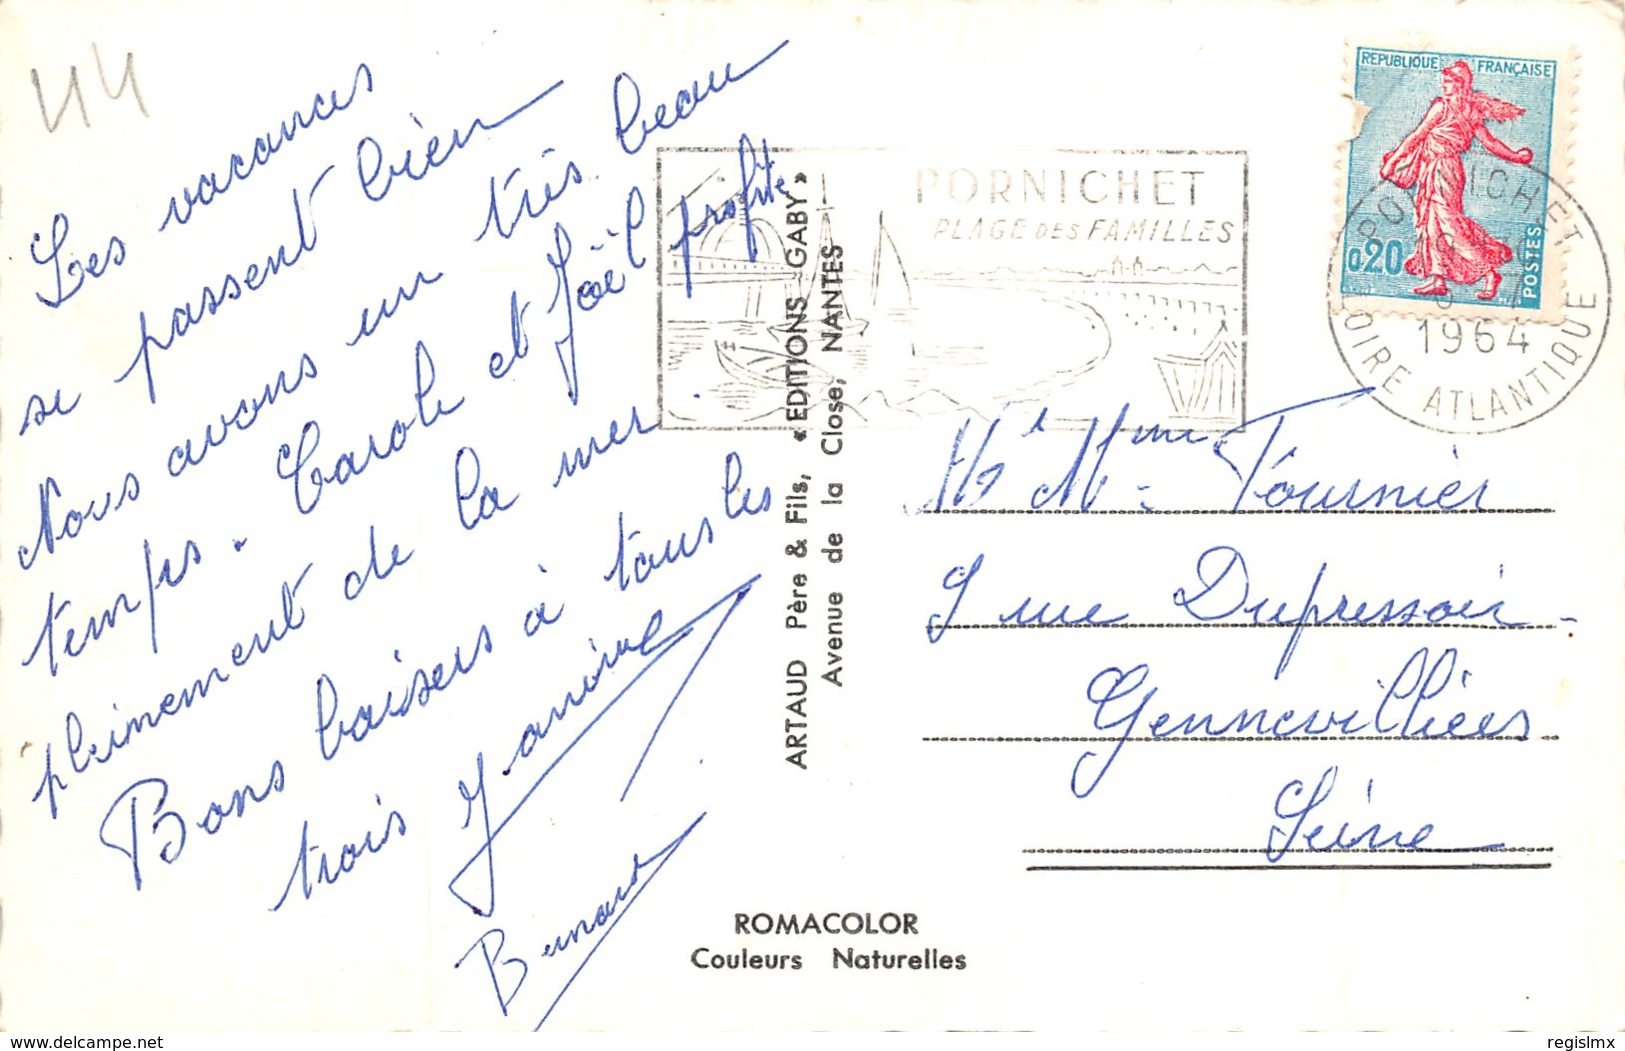 44
Les vacances
se passent bien
Nous avons un très beau
temps. Carole et Joël profite
pleinement de la mer.
Bons baisers à tous les
trois Janine
Bernard
ARTAUD Père & Fils, « EDITIONS GABY »
Avenue de la Close, NANTES
ROMACOLOR
Couleurs Naturelles
PORNICHET
PLAGE DES FAMILLES
REPUBLIQUE FRANÇAISE
0,20
POSTES
PORNICHET
1964
LOIRE ATLANTIQUE
Mr Mme Tournier
9 rue Dupressoir -
Gennevilliers
Seine
delcampe.net
regislmx